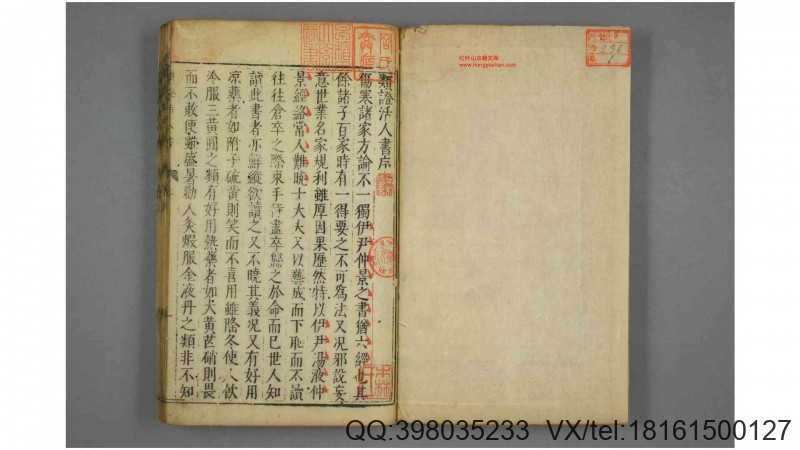 類證活人書序
傷寒諸家方論不一獨伊尹仲景之書猶六經也其
餘諸子百家時有一得要之不可爲法又况邪說妄
意世業名家規利雖厚因果歷然特以伊尹湯液仲
景經絡常人難曉士大夫又以藝成而下恥而不讀
往往倉卒之際束手待盡卒歸之於命而已世人知
讀此書者亦鮮縱欲讀之又不曉其義况又有好用
凉藥者如附子硫黄則笑而不喜用雖隆冬使人飲
冷服三黄圓之類有好用熱藥者如大黄芒硝則畏
而不敢使雖盛暑勸人灸煅服金液丹之類非不知
红叶山古籍文库
www.hongyeshan.com
QQ:398035233 VX/tel:18161500127